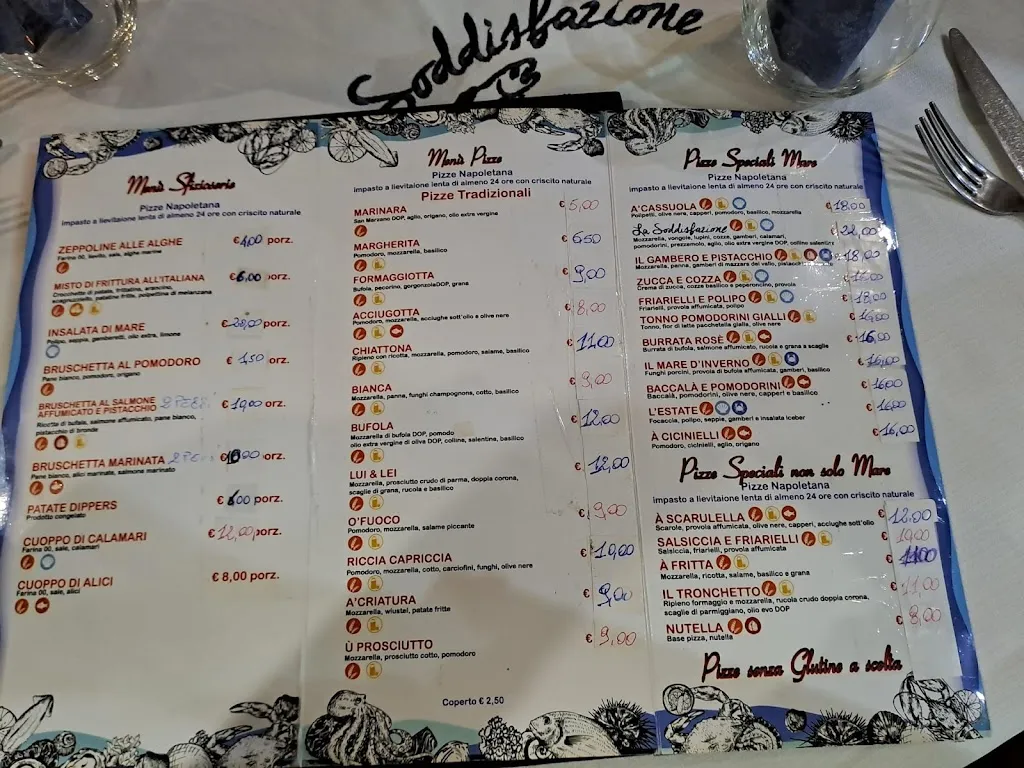 Soddisfazione
Menù Sfizioserie
Pizze Napoletana
impasto a lievitaione lenta di almeno 24 ore con criscito naturale
ZEPPOLINE ALLE ALGHE € 4,00 porz.
Farina 00, lievito, sale, alghe marine
MISTO DI FRITTURA ALL'ITALIANA € 6,00 porz.
Crocchette di patate, frittatina, arancino,
scagliozzielli, patatine fritte, polpettina di melanzana
INSALATA DI MARE € 20,00 porz.
Polipo, seppie, gamberetti, olio extra, limone
BRUSCHETTA AL POMODORO € 1,50 orz.
Pane bianco, pomodoro, origano
BRUSCHETTA AL SALMONE
AFFUMICATO E PISTACCHIO € 10,00 orz.
Ricotta di bufala, salmone affumicato, pane bianco,
pistacchio di bronde
BRUSCHETTA MARINATA € 10,00 orz.
Pane bianco, alici marinate, salmone marinato
PATATE DIPPERS € 6,00 porz.
Prodotto congelato
CUOPPO DI CALAMARI € 12,00 porz.
Farina 00, sale, calamari
CUOPPO DI ALICI € 8,00 porz.
Farina 00, sale, alici
Menù Pizze
Pizze Napoletana
impasto a lievitaione lenta di almeno 24 ore con criscito naturale
Pizze Tradizionali
MARINARA € 5,00
San Marzano DOP, aglio, origano, olio extra vergine
MARGHERITA € 6,50
Pomodoro, mozzarella, basilico
FORMAGGIOTTA € 9,00
Bufola, pecorino, gorgonzolaDOP, grana
ACCIUGOTTA € 8,00
Pomodoro, mozzarella, acciughe sott'olio e olive nere
CHIATTONA € 11,00
Ripieno con ricotta, mozzarella, pomodoro, salame, basilico
BIANCA € 9,00
Mozzarella, panna, funghi champognons, cotto, basilico
BUFOLA € 12,00
Mozzarella di bufola DOP, pomodo
olio extra vergine di oliva DOP, colline, salentina, basilico
LUI & LEI € 12,00
Mozzarella, prosciutto crudo di parma, doppia corona,
scaglie di grana, rucola e basilico
O'FUOCO € 9,00
Pomodoro, mozzarella, salame piccante
RICCIA CAPRICCIA € 10,00
Pomodoro, mozzarella, cotto, carciofini, funghi, olive nere
A'CRIATURA € 9,00
Mozzarella, wiustel, patate fritte
Ù PROSCIUTTO € 9,00
Mozzarella, prosciutto cotto, pomodoro
Coperto € 2,50
Pizze Speciali Mare
Pizze Napoletana
impasto a lievitaione lenta di almeno 24 ore con criscito naturale
A'CASSUOLA € 18,00
Polipetti, olive nere, capperi, pomodoro, basilico, mozzarella
La Soddisfazione € 22,00
Mozzarella, vongole, lupini, cozze, gamberi, calamari,
pomodorini, prezzemolo, aglio, olio extra vergine DOP, colline salentine
IL GAMBERO E PISTACCHIO 18,00
Mozzarella, panna, gamberi di mazzara del vallo, pistacchio
ZUCCA E COZZA €
Crema di zucca, cozze basilico e peperoncino, provola
FRIARIELLI E POLIPO € 18,00
Friarielli, provola affumicata, polipo
TONNO POMODORINI GIALLI € 16,00
Tonno, fior di latte pacchetella gialla, olive nere
BURRATA ROSÈ € 16,00
Burrata di bufala, salmone affumicato, rucola e grana a scaglie
IL MARE D'INVERNO € 16,00
Funghi porcini, provola di bufala affumicata, gamberi, basilico
BACCALÀ E POMODORINI € 16,00
Baccalà, pomodorini, olive nere, capperi e basilico
L'ESTATE € 16,00
Focaccia, polipo, seppie, gamberi e insalata iceber
À CICINIELLI € 16,00
Pomodoro, cicinielli, aglio, origano
Pizze Speciali non solo Mare
Pizze Napoletana
impasto a lievitaione lenta di almeno 24 ore con criscito naturale
À SCARULELLA € 12,00
Scarole, provola affumicata, olive nere, capperi, acciughe sott'olio
SALSICCIA E FRIARIELLI € 10,00
Salsiccia, friarielli, provola affumicata
À FRITTA € 11,00
Mozzarella, ricotta, salame, basilico e grana
IL TRONCHETTO € 11,00
Ripieno formaggio e mozzarella, rucola crudo doppia corona,
scaglie di parmiggiano, olio evo DOP
NUTELLA € 8,00
Base pizza, nutella
Pizze senza Glutine a scelta